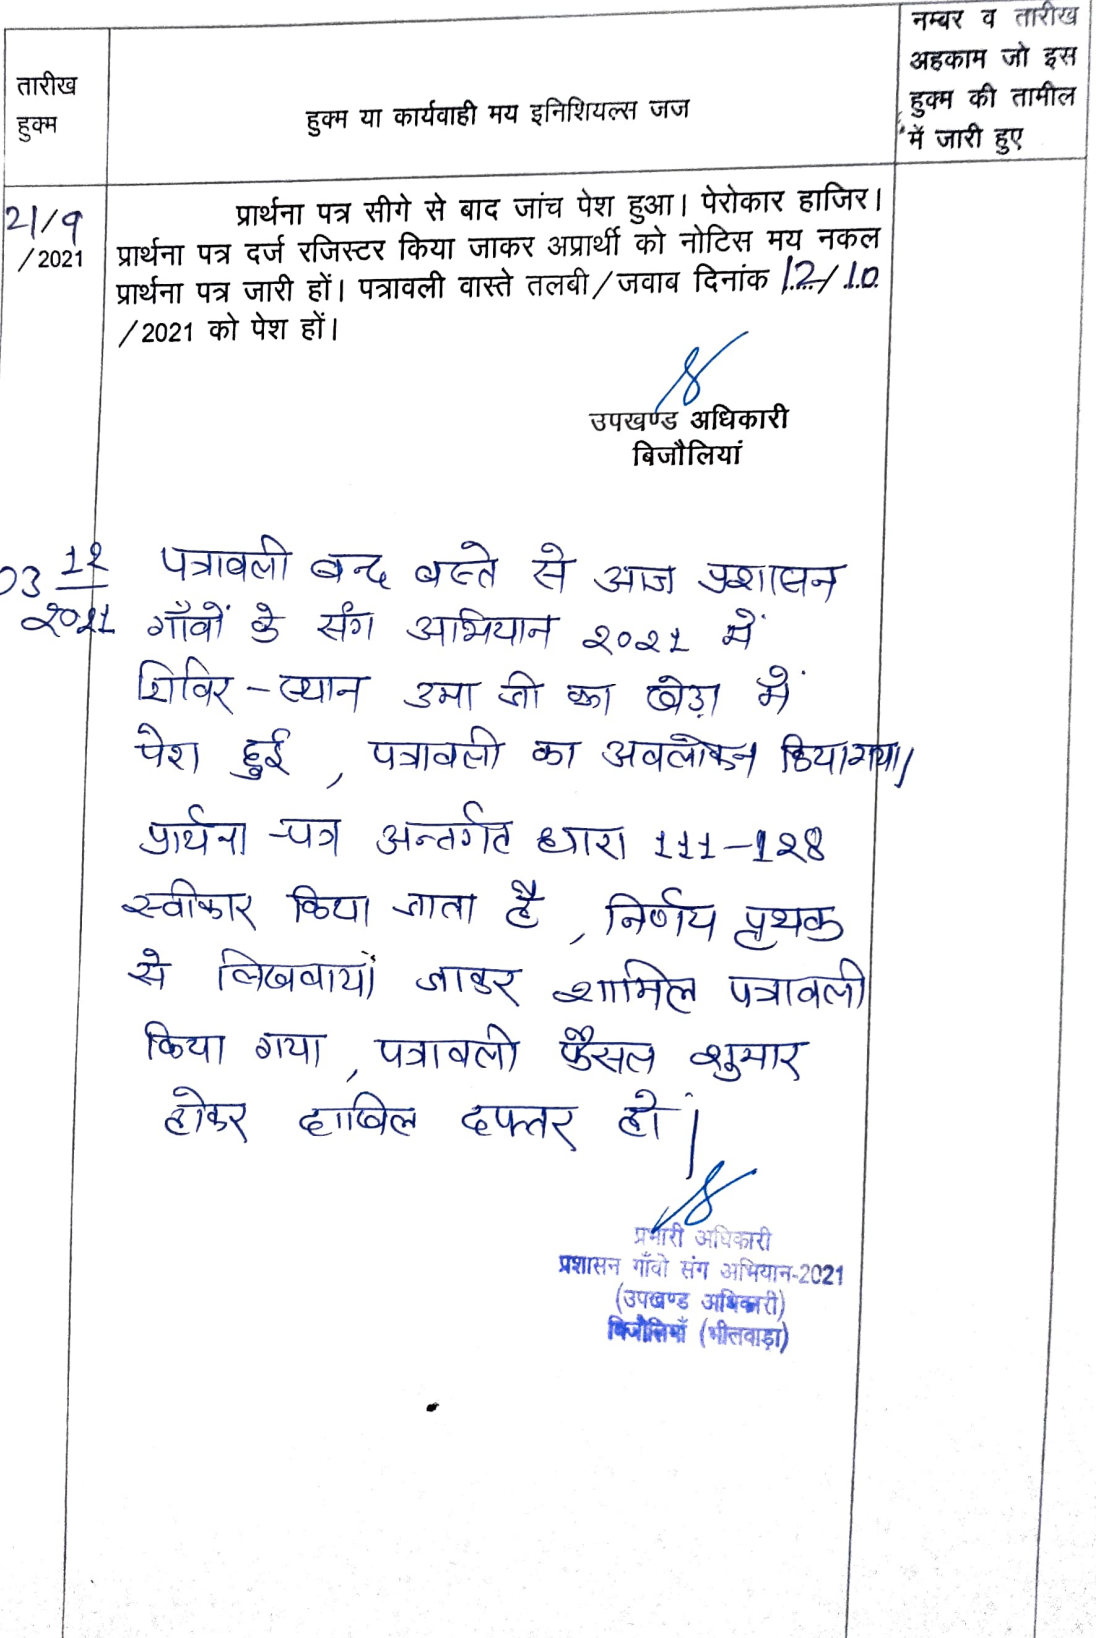 तारीख
हुक्म
हुक्म या कार्यवाही मय इनिशियल्स जज
नम्बर व तारीख
अहकाम जो इस
हुक्म की तामील
में जारी हुए
21/9
/2021
प्रार्थना पत्र सीगे से बाद जांच पेश हुआ। पेरोकार हाजिर।
प्रार्थना पत्र दर्ज रजिस्टर किया जाकर अप्रार्थी को नोटिस मय नकल
प्रार्थना पत्र जारी हों। पत्रावली वास्ते तलबी/जवाब दिनांक 12/10
/2021 को पेश हों।
उपखण्ड अधिकारी
बिजौलियां
03 12
२०२1
पत्रावली बन्द बस्ते से आज प्रशासन
गाँवों के संग अभियान २०२1 में
शिविर-स्थान उमा जी का खेड़ा में
पेश हुई, पत्रावली का अवलोकन किया गया।
प्रार्थना-पत्र अन्तर्गत धारा 111-1२8
स्वीकार किया जाता है, निर्णय पृथक
से लिखवाया जाकर शामिल पत्रावली
किया गया, पत्रावली फैसल शुमार
होकर दाखिल दफ्तर हो।
प्रभारी अधिकारी
प्रशासन गाँवो संग अभियान-2021
(उपखण्ड अधिकारी)
बिजौलियाँ (भीलवाड़ा)